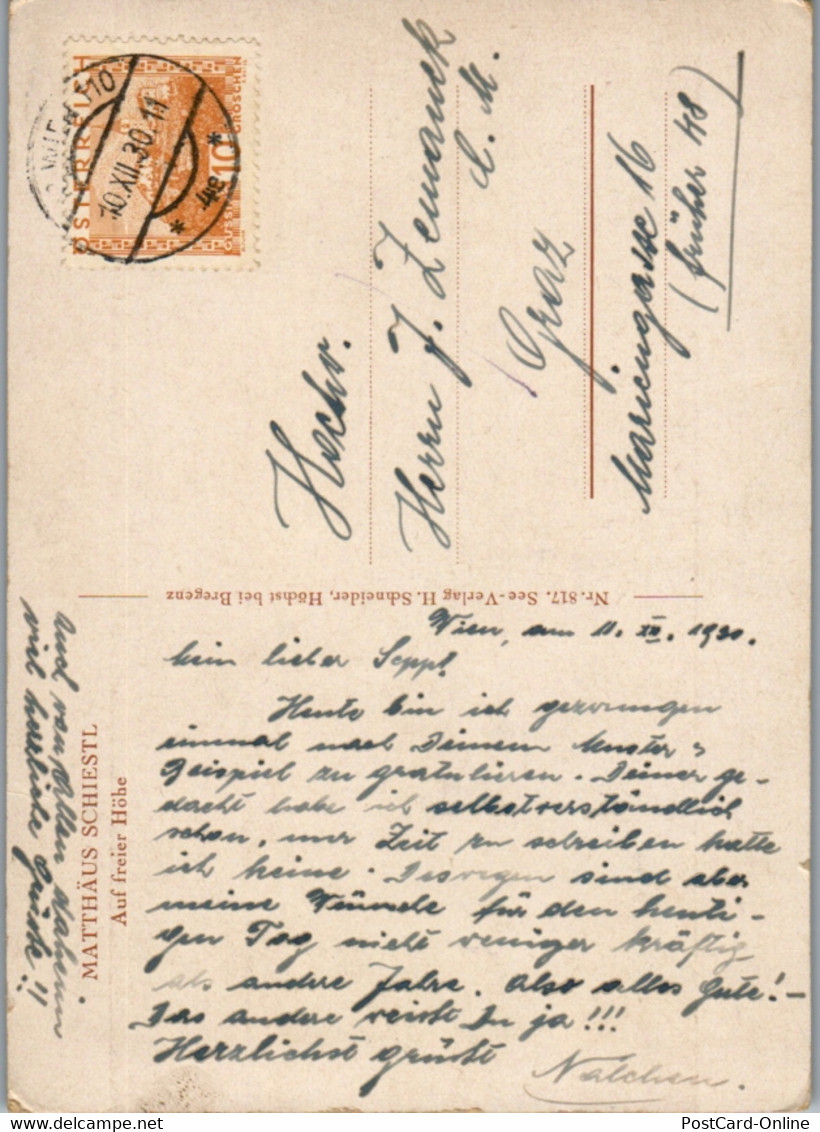 ÖSTERREICH
10 GROSCHEN
WIEN 110
10.XII.30.11
* 4e *
Hochw.
Herrn J. Zemanek
Graz
Mariengasse 16
(früher 48)
Nr. 817. See-Verlag H. Schneider, Höchst bei Bregenz
MATTHÄUS SCHIESTL
Auf freier Höhe
Wien, am 11. XII. 1930.
Mein lieber Seppl!
Heute bin ich gezwungen
einmal nach Deinem Muster =
Beispiel zu gratulieren. Deiner ge-
dacht habe ich selbstverständlich
schon, nur Zeit zu schreiben hatte
ich keine. Deswegen sind aber
meine Wünsche für den heuti-
gen Tag nicht weniger kräftig
als andere Jahre. Also alles Gute! -
Das andere weißt Du ja!!!
Herzlichst grüßt
Nalchen.
Auch von Allen daheim
viel herzliche Grüße!!
PostCard-Online